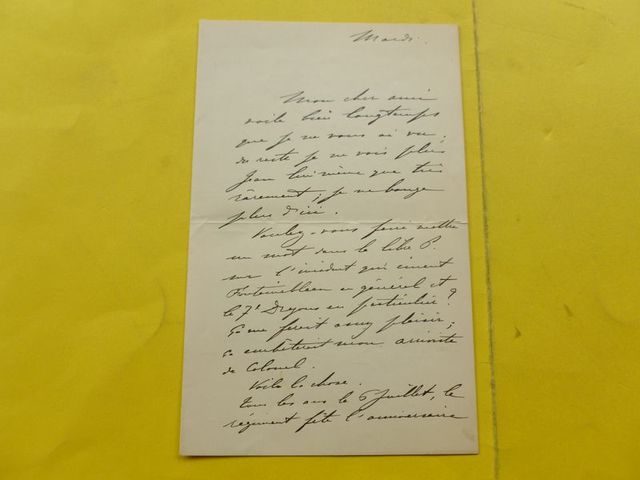 Mardi.
Mon cher ami
voilà bien longtemps
que je ne vous ai vu.
du reste je ne vois plus
Jean lui même que très
rarement ; je ne bouge
plus d'ici.
Voulez-vous faire mettre
un mot dans la libre P.
sur l'incident qui émeut
Fontainebleau en général et
le 7e Dragons en particulier ?
ça me ferait assez plaisir,
ça embêterait mon
de Colonel.
Voilà la chose.
Tous les ans le 6 Juillet, le
régiment fête l'anniversaire